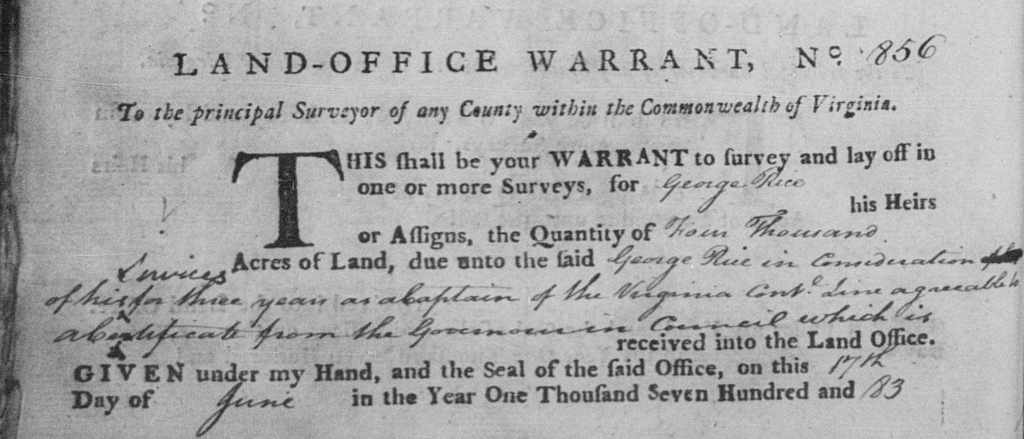 LAND-OFFICE WARRANT, No. 856
To the principal Surveyor of any County within the Commonwealth of Virginia.
THIS ſhall be your WARRANT to ſurvey and lay off in
one or more Surveys, for George Rice
his Heirs
or Aſſigns, the Quantity of Four Thousand
Acres of Land, due unto the ſaid George Rice in Consideration
Services
of his for three years as a Captain of the Virginia Contl. Line agreeable to
a Certificate from the Governour in Council which is
received into the Land Office.
GIVEN under my Hand, and the Seal of the ſaid Office, on this 17th
Day of June in the Year One Thouſand Seven Hundred and 83